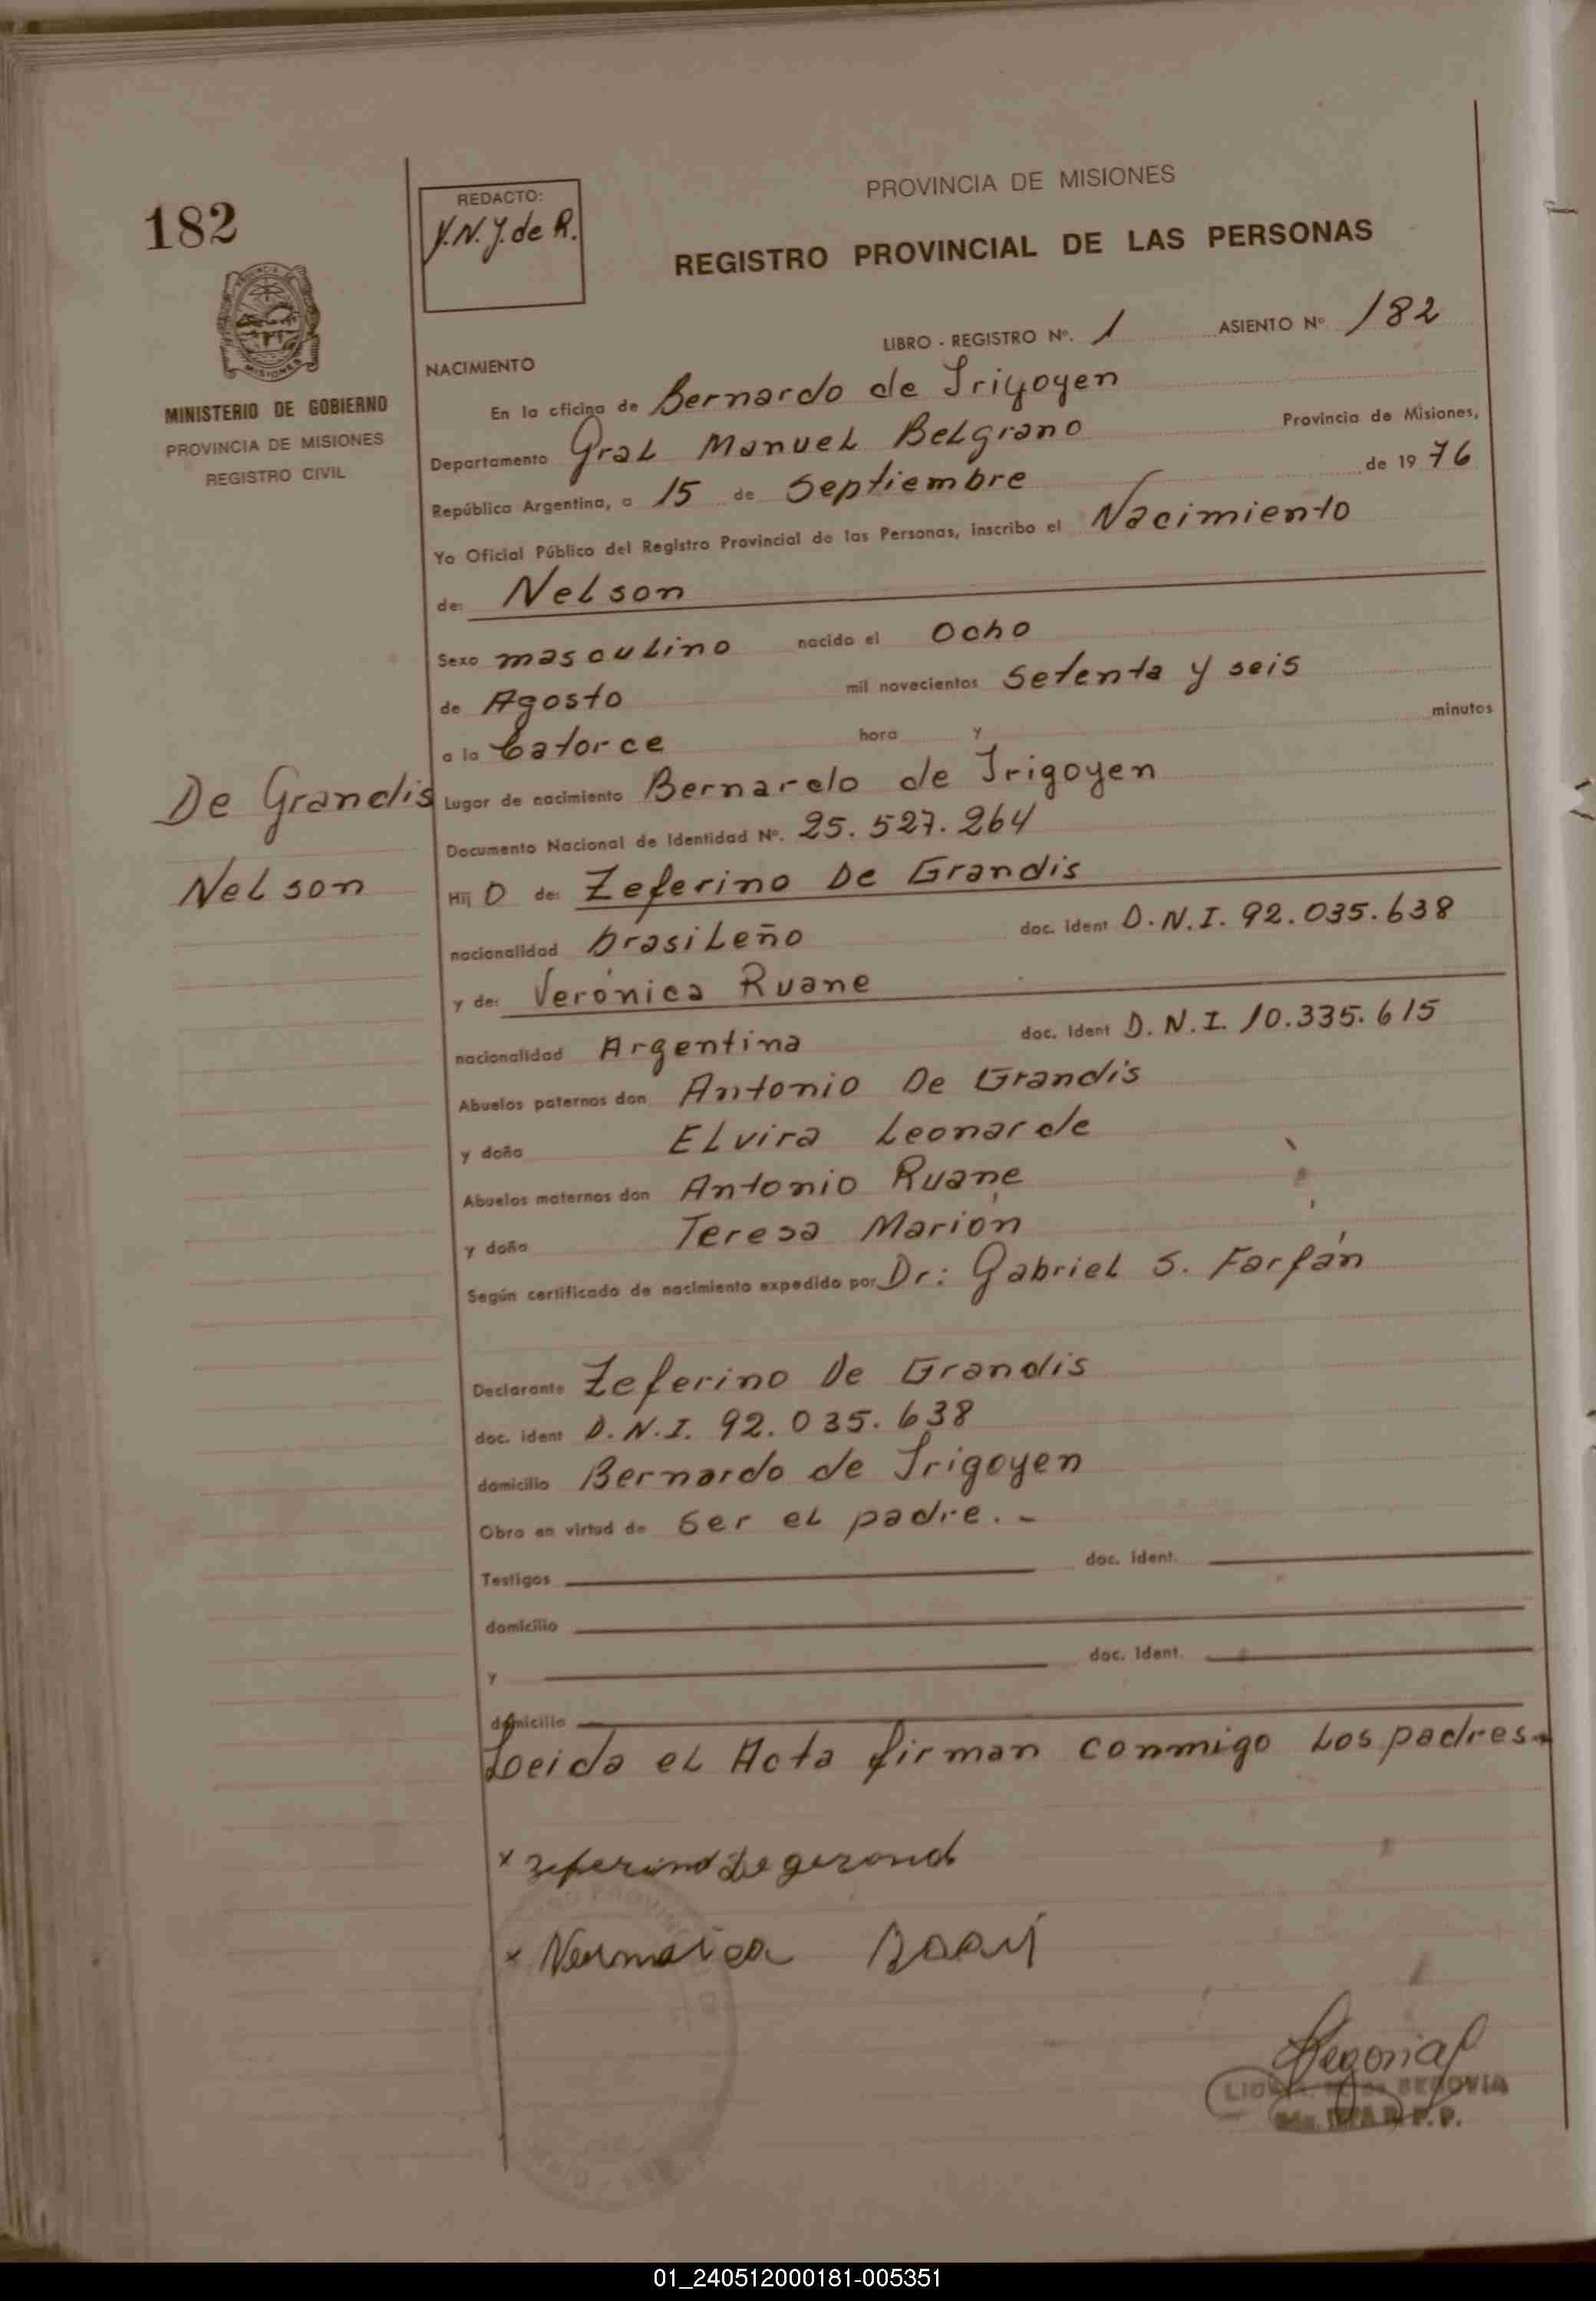 182
MINISTERIO DE GOBIERNO
PROVINCIA DE MISIONES
REGISTRO CIVIL
REDACTO:
Y.N.J. de R.
PROVINCIA DE MISIONES
REGISTRO PROVINCIAL DE LAS PERSONAS
LIBRO - REGISTRO Nº. 1 ASIENTO Nº 182
NACIMIENTO
En la oficina de Bernardo de Irigoyen
Departamento Gral Manuel Belgrano Provincia de Misiones,
República Argentina, a 15 de Septiembre de 1976
Yo Oficial Público del Registro Provincial de las Personas, inscribo el Nacimiento
de: Nelson
Sexo masculino nacido el Ocho
de Agosto mil novecientos Setenta y seis
a la Catorce hora y minutos
De Grandis
Nelson
Lugar de nacimiento Bernardo de Irigoyen
Documento Nacional de Identidad Nº. 25.527.264
Hij O de: Zeferino De Grandis
nacionalidad brasileño doc. ident D.N.I. 92.035.638
y de: Verónica Ruane
nacionalidad Argentina doc. ident D.N.I. 10.335.615
Abuelos paternos don Antonio De Grandis
y doña Elvira Leonarde
Abuelos maternos don Antonio Ruane
y doña Teresa Marion
Según certificado de nacimiento expedido por Dr: Gabriel S. Farfán
Declarante Zeferino De Grandis
doc. ident D.N.I. 92.035.638
domicilio Bernardo de Irigoyen
Obra en virtud de Ser el padre. -
Testigos doc. ident.
domicilio
y doc. ident.
domicilio
Leida el Acta firman conmigo Los padres.
SEGOVIA
01_240512000181-005351